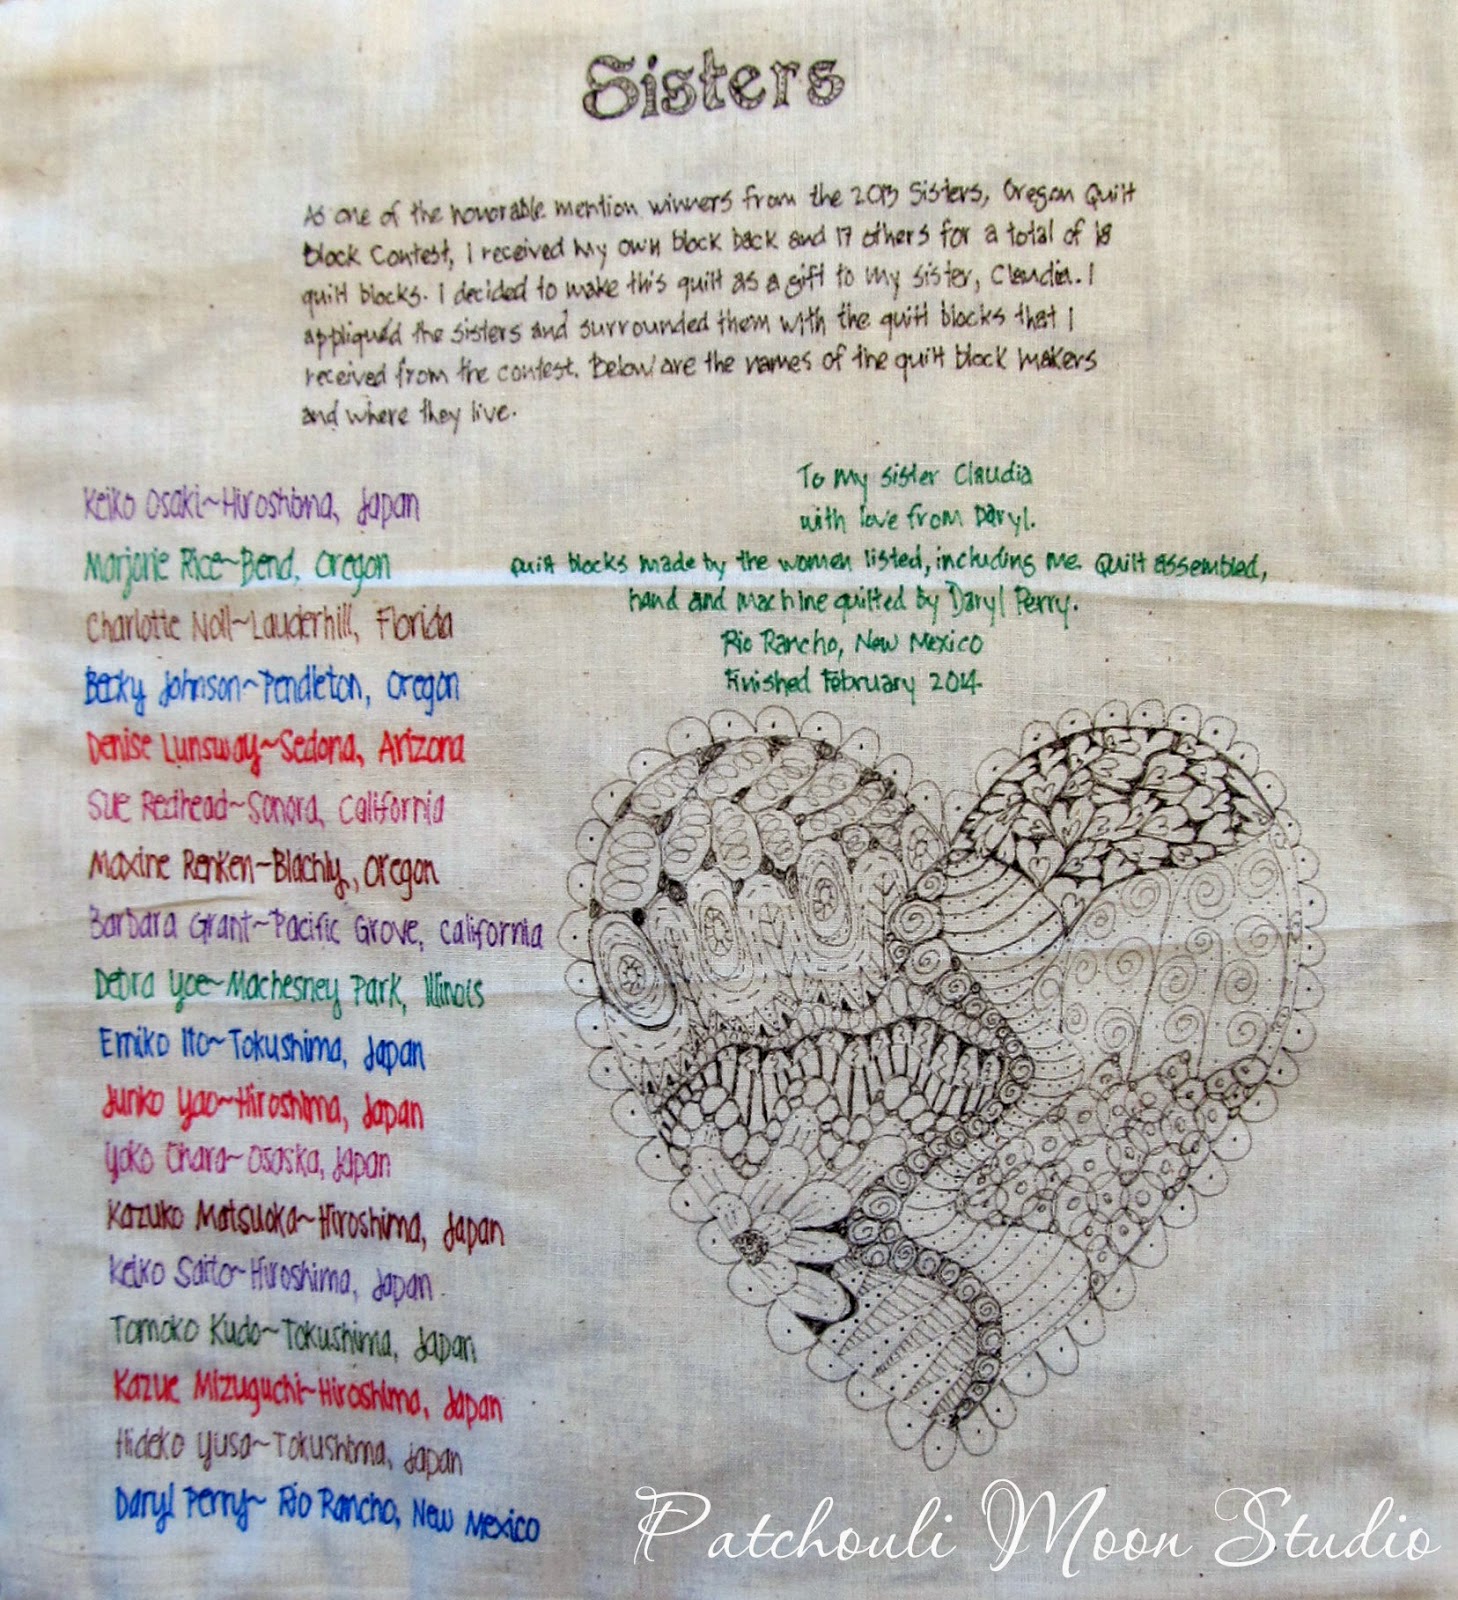 Sisters
As one of the honorable mention winners from the 2013 Sisters, Oregon Quilt
Block Contest, I received my own block back and 17 others for a total of 18
quilt blocks. I decided to make this quilt as a gift to my sister, Claudia. I
appliquéd the sisters and surrounded them with the quilt blocks that I
received from the contest. Below are the names of the quilt block makers
and where they live.
To my sister Claudia
with love from Daryl.
Quilt blocks made by the women listed, including me. Quilt assembled,
hand and machine quilted by Daryl Perry.
Rio Rancho, New Mexico
Finished February 2014.
Keiko Osaki~Hiroshima, Japan
Marjorie Rice~Bend, Oregon
Charlotte Noll~Lauderhill, Florida
Becky Johnson~Pendleton, Oregon
Denise Lunsway~Sedona, Arizona
Sue Redhead~Sonora, California
Maxine Renken~Blachly, Oregon
Barbara Grant~Pacific Grove, California
Debra Yoe~Machesney Park, Illinois
Emiko Ito~Tokushima, Japan
Junko Yao~Hiroshima, Japan
Yoko Ohara~Osaska, Japan
Kazuko Matsuoka~Hiroshima, Japan
Keiko Saito~Hiroshima, Japan
Tomoko Kudo~Tokushima, Japan
Kazue Mizuguchi~Hiroshima, Japan
Hideko Yusa~Tokushima, Japan
Daryl Perry~ Rio Rancho, New Mexico
Patchouli Moon Studio